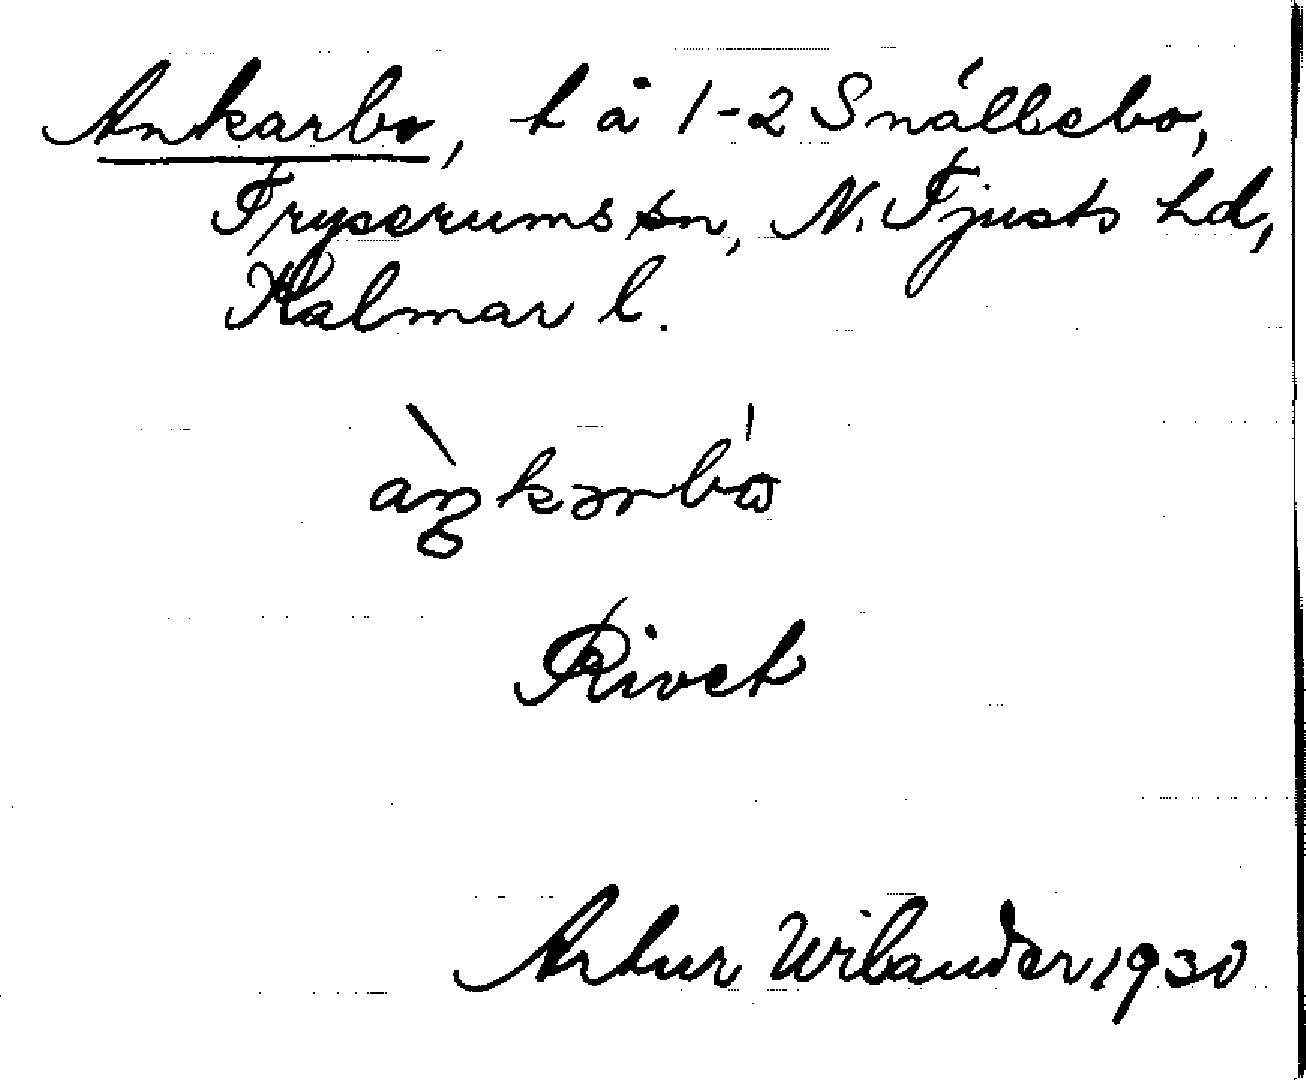 Ankarbo, t å 1-2 Snällebo,
Tryserums sn, N. Tjusts hd,
Kalmar l.
àŋkərbó
Rivet
Artur Wilander 1930